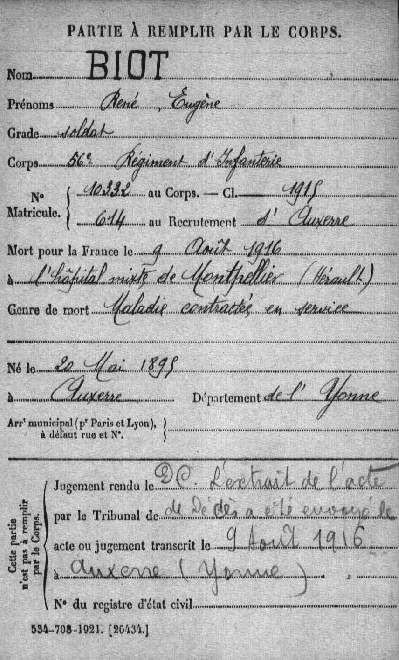 PARTIE À REMPLIR PAR LE CORPS.
Nom BIOT
Prénoms René, Eugène
Grade soldat
Corps 56e Régiment d'Infanterie
N° Matricule. { 10332 au Corps. — Cl. 1915
614 au Recrutement d'Auxerre
Mort pour la France le 9 Août 1916
à l'hôpital mixte de Montpellier (Hérault)
Genre de mort Maladie contractée en service
Né le 20 Mai 1895
à Auxerre Département de l'Yonne
Arrt municipal (pr Paris et Lyon), à défaut rue et N°. }
Cette partie n'est pas à remplir par le Corps.
Jugement rendu le DC. L'extrait de l'acte
par le Tribunal de de Décès a été envoyé le
acte ou jugement transcrit le 9 Août 1916
à Auxerre (Yonne)
N° du registre d'état civil
534-708-1921. [26434.]